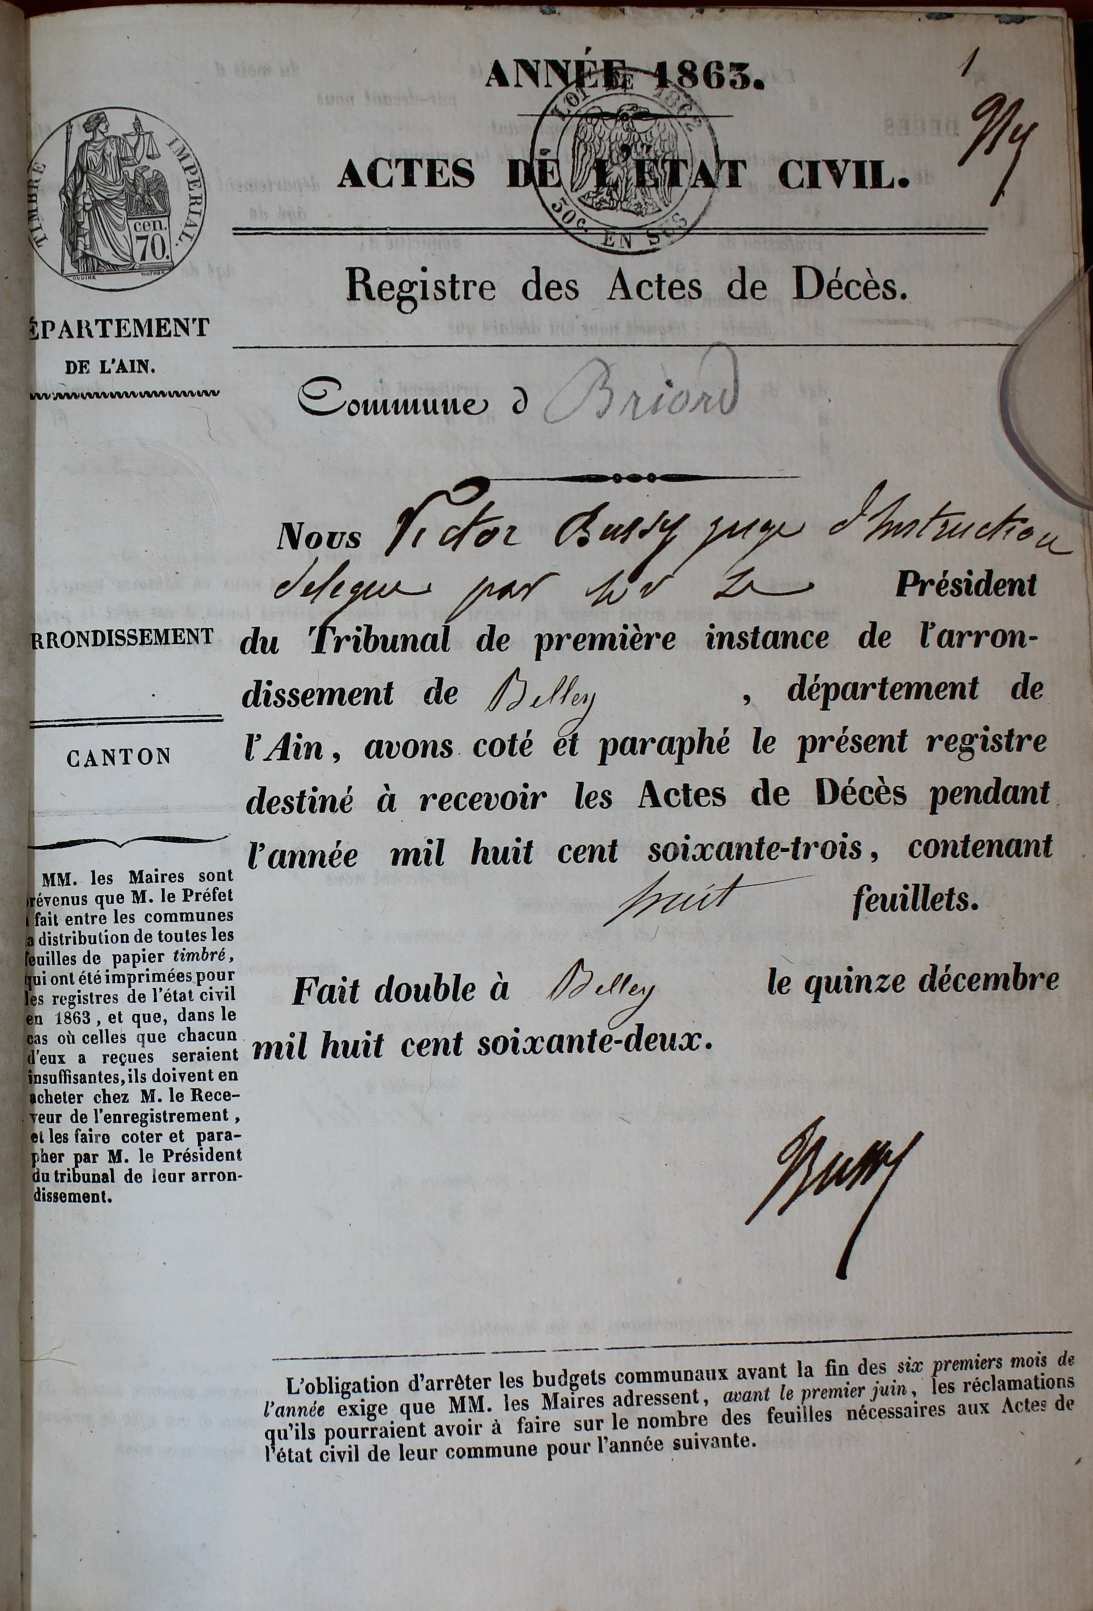 ANNÉE 1863.
1
LOI DE 1862
50c. EN SUS
ACTES DE L'ÉTAT CIVIL.
TIMBRE IMPÉRIAL.
cen.
70.
Registre des Actes de Décès.
ÉPARTEMENT
DE L'AIN.
Commune d Briord
Nous Victor Bussy juge d'Instruction
délégué par Le Président
du Tribunal de première instance de l'arron-
dissement de Belley, département de
l'Ain, avons coté et paraphé le présent registre
destiné à recevoir les Actes de Décès pendant
l'année mil huit cent soixante-trois, contenant
huit feuillets.
Fait double à Belley le quinze décembre
mil huit cent soixante-deux.
Bussy
RRONDISSEMENT
CANTON
MM. les Maires sont
révenus que M. le Préfet
fait entre les communes
a distribution de toutes les
euilles de papier timbré,
qui ont été imprimées pour
les registres de l'état civil
en 1863, et que, dans le
cas où celles que chacun
d'eux a reçues seraient
insuffisantes, ils doivent en
acheter chez M. le Rece-
veur de l'enregistrement,
et les faire coter et para-
pher par M. le Président
du tribunal de leur arron-
dissement.
L'obligation d'arrêter les budgets communaux avant la fin des six premiers mois de
l'année exige que MM. les Maires adressent, avant le premier juin, les réclamations
qu'ils pourraient avoir à faire sur le nombre des feuilles nécessaires aux Actes de
l'état civil de leur commune pour l'année suivante.